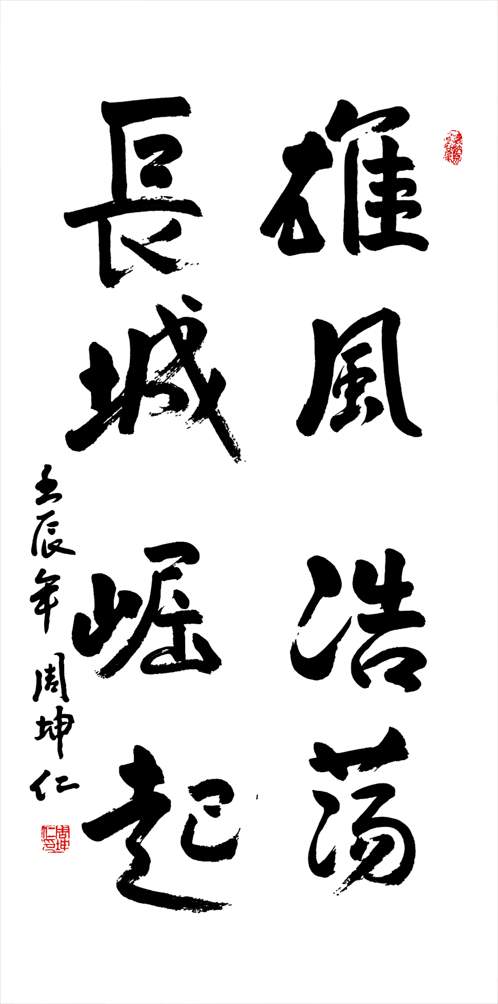 雄風浩荡
長城崛起
壬辰年 周坤仁